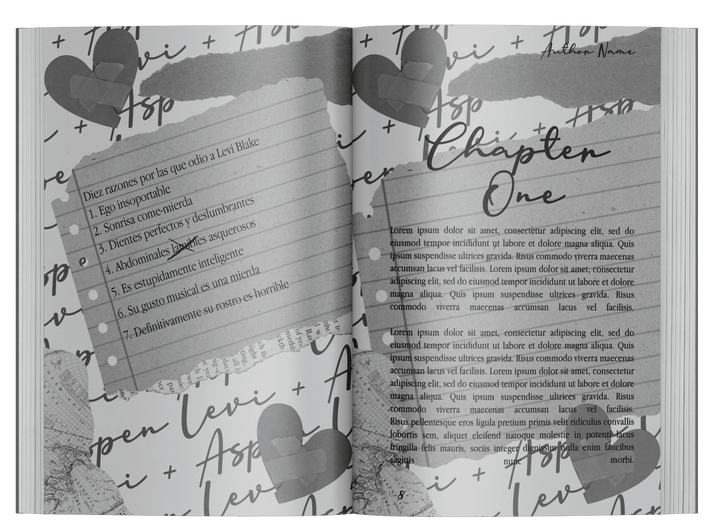 Diez razones por las que odio a Levi Blake
1. Ego insoportable
2. Sonrisa come-mierda
3. Dientes perfectos y deslumbrantes
4. Abdominales asquerosos
5. Es estupidamente inteligente
6. Su gusto musical es una mierda
7. Definitivamente su rostro es horrible
Author Name
Chapter
One
Lorem ipsum dolor sit amet, consectetur adipiscing elit, sed do
eiusmod tempor incididunt ut labore et dolore magna aliqua. Quis
ipsum suspendisse ultrices gravida. Risus commodo viverra maecenas
accumsan lacus vel facilisis. Lorem ipsum dolor sit amet, consectetur
adipiscing elit, sed do eiusmod tempor incididunt ut labore et dolore
magna aliqua. Quis ipsum suspendisse ultrices gravida. Risus
commodo viverra maecenas accumsan lacus vel facilisis.
Lorem ipsum dolor sit amet, consectetur adipiscing elit, sed do
eiusmod tempor incididunt ut labore et dolore magna aliqua. Quis
ipsum suspendisse ultrices gravida. Risus commodo viverra maecenas
accumsan lacus vel facilisis. Lorem ipsum dolor sit amet, consectetur
adipiscing elit, sed do eiusmod tempor incididunt ut labore et dolore
magna aliqua. Quis ipsum suspendisse ultrices gravida. Risus
commodo viverra maecenas accumsan lacus vel facilisis.
Risus pellentesque eros ligula pretium primis velit ridiculus convallis
lobortis sem, aliquet eleifend natoque molestie in potenti lacus
fringilla felis mauris, sociis integer dignissim nulla enim faucibus
sagittis nunc morbi.
8